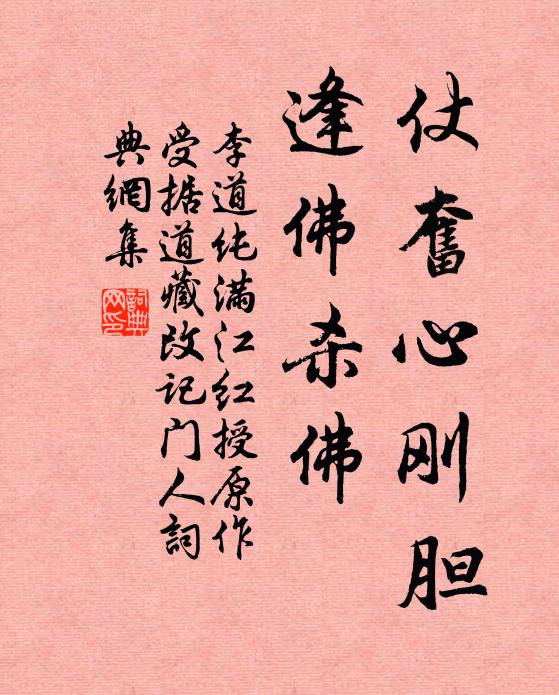 仗奮心刚胆
逢佛杀佛
李道纯满江红授原作
受据道藏改记门人詞
典網集
詞典
网印